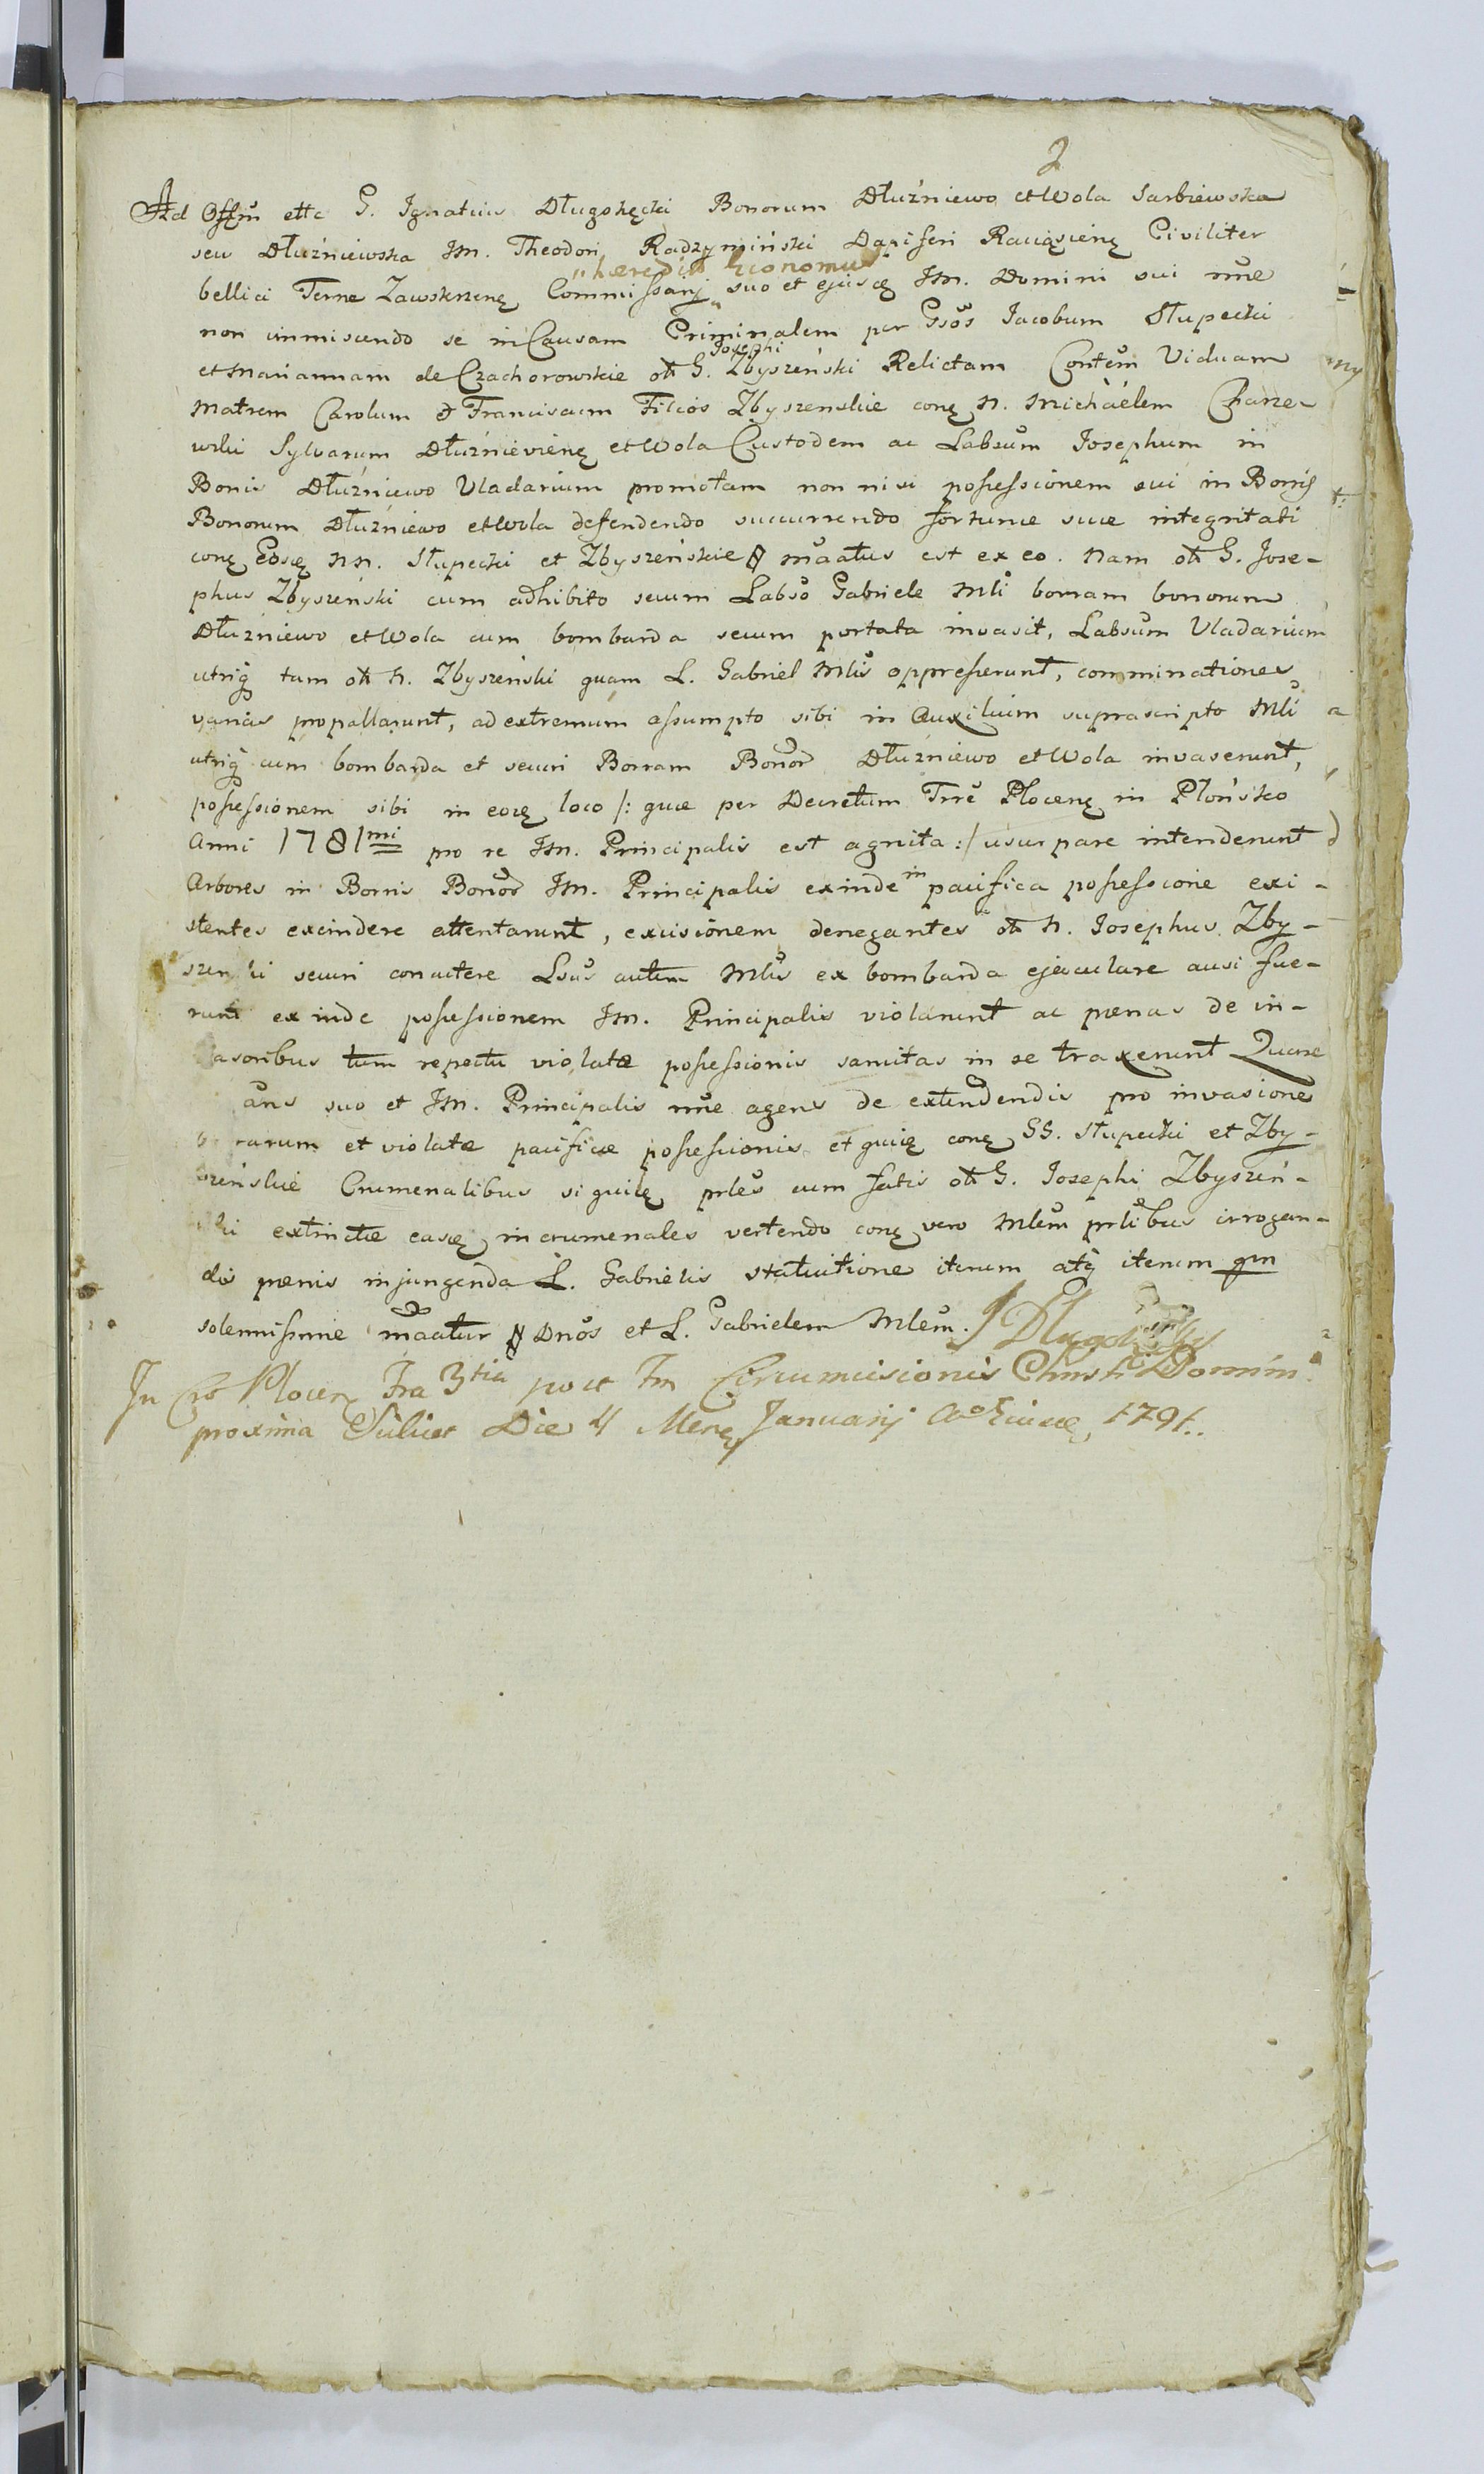 2
Ad Offm̄ ettc G. Ignatius Długołęcki Bonorum Dłużniewo et Wola Sarbiewska
seu Dłużniewska Jm. Theodori Radzymiński Dapiferi Raciąscienę Civiliter
„hæredis Economus
bellici Terræ Zawskrzenę Commissarij „ suo et ejuscę Jm. Domini sui nn̄e
non immiscendo se in Causam Criminalem per Gsōs Jacobum Słupecki
Josephi
et Mariannam de Czachorowskie oł̄i G. Zbyszeński Relictam Contēm Viduam
Matrem Carolum & Franciscum Filios Zbyszenskie conę N. Michàélem Charze-
wski Sylvarum Dłużnievienę et Wola Custodem ac Labsūm Josephum in
Bonis Dłużniewo Vladarium promotam non nisi possessionem sui in Borrijs
Bonorum Dłużniewo et Wola defendendo succurrendo fortunæ suæ integritati
conę Eoscę NN. Słupecki et Zbyszeńskie mā̄atus est ex eo. Nam oł̄i G. Jose-
phus Zbyszeński cum adhibito secum Labsō Gabriele Mlī borram bonorum
Dłużniewo et Wola cum bombarda secum portata invasit, Labsūm Vladarium
utriq̄ tam oł̄i N. Zbyszeński quam L. Gabriel Mlūs oppresserunt, comminationes
varias propallarunt, ad extremum assumpto sibi in Auxilium suprascripto Mlī
utriq̄ cum bombarda et securi Borram Bonor̄ Dłużniewo et Wola invaserunt,
possessionem sibi in eocę loco /: quæ per Decretum Trrē Plocenę in Płońsko
Anni 1781mi pro re Jm. Principalis est agnita :/ usurpare intenderunt
Arbores in Borris Bonor̄ Jm. Principalis exinde in pacifica possessione exi-
stentes excindere attentarunt, excisionem denegantes oł̄i N. Josephus Zby-
szenski securi concutere Lsūs autem Mlūs ex bombarda ejaculare ausi fue-
runt exinde possessionem Jm. Principalis violarunt ac pœnas de in-
asoribus tum repectu violatæ possessionis sancitas in se traxerunt Quare
āns suo et Jm. Principalis nn̄e agens de extendendis pro invasione
rarum et violatæ pacificæ possessionis et quiię conę GG. Słupecki et Zby-
szeńskie Crumenalibus si quiię prlēs cum fatis oł̄i G. Josephi Zbyszeń-
ski extinctæ eascę in crumenales vertendo conę vero Mlēm prlībus irrogan-
dis pœnis injungenda L. Gabrielis statuitione iterum atq̄ iterum qm
solennissime mā̄atur Dnōs et L. Gabrielem Mlēm. J Długołęcki
In Cro Plocen Fra 3tia post Fm Circumcisionis Christi Domini
proxima Scilicet Die 4 Mens Januarij Ao Eiusc, 1791.